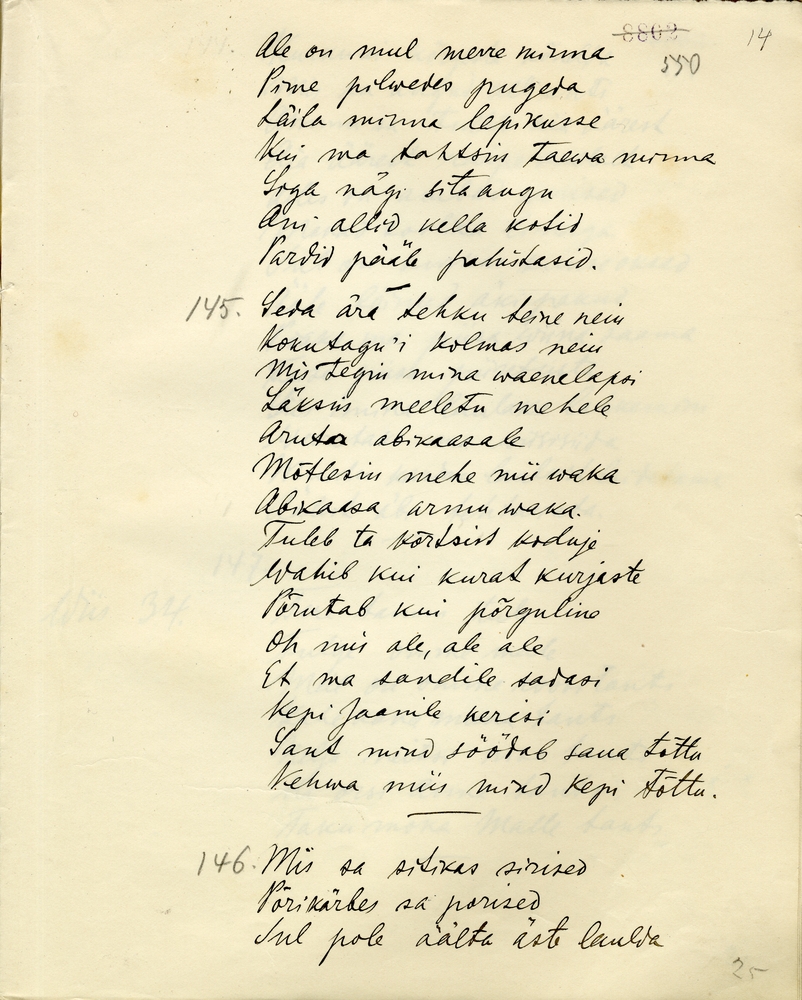 8802
14
550
Ale on mul merre minna
Pime pilwedes pugeda
Läila minna lepikusse
Kui ma tahtsin taewa minna
Siga nägi sitaaugu
Ani allid kella kotid
Pardid pääle pahistasid.
145. Seda ärä tehku teine nein
Kokutagu'i kolmas nein
Mis tegin mina waenelapsi
Läksin meeletu mehele
Aruta abikaasale
Mõtlesin mehe nii waka
Abikaasa armu waka.
Tuleb ta kõrtsist koduje
Wahib kui kurat kurjaste
Põrutab kui põrguline
Oh mis ale, ale ale
Et ma sandile sadasi
Kepi Jaanile kerisi
Sant mind söödab sana tõttu
Kehwa miis mind kepi tõttu.
146. Mis sa sitikas sirised
Põrikärbes sa porised
Sul pole äälta äste laulda
25